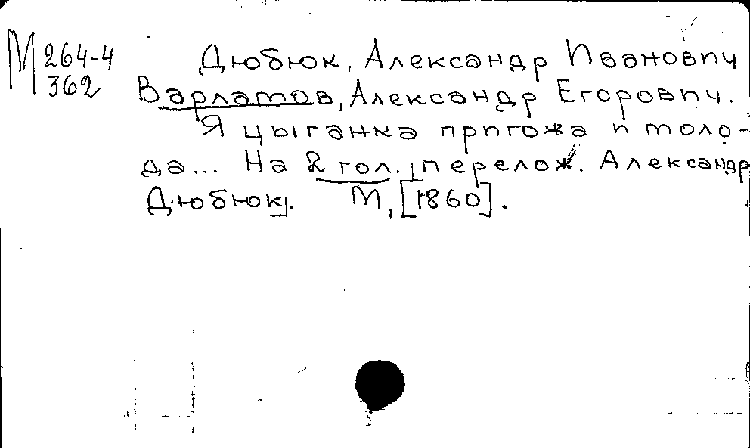 М 264-4
362
Дюбюк, Александр Иванович
Варламов, Александр Егорович.
Я цыганка пригожа и моло-
да... На 2 гол. [перелож. Александр
Дюбюк]. М, [1860].